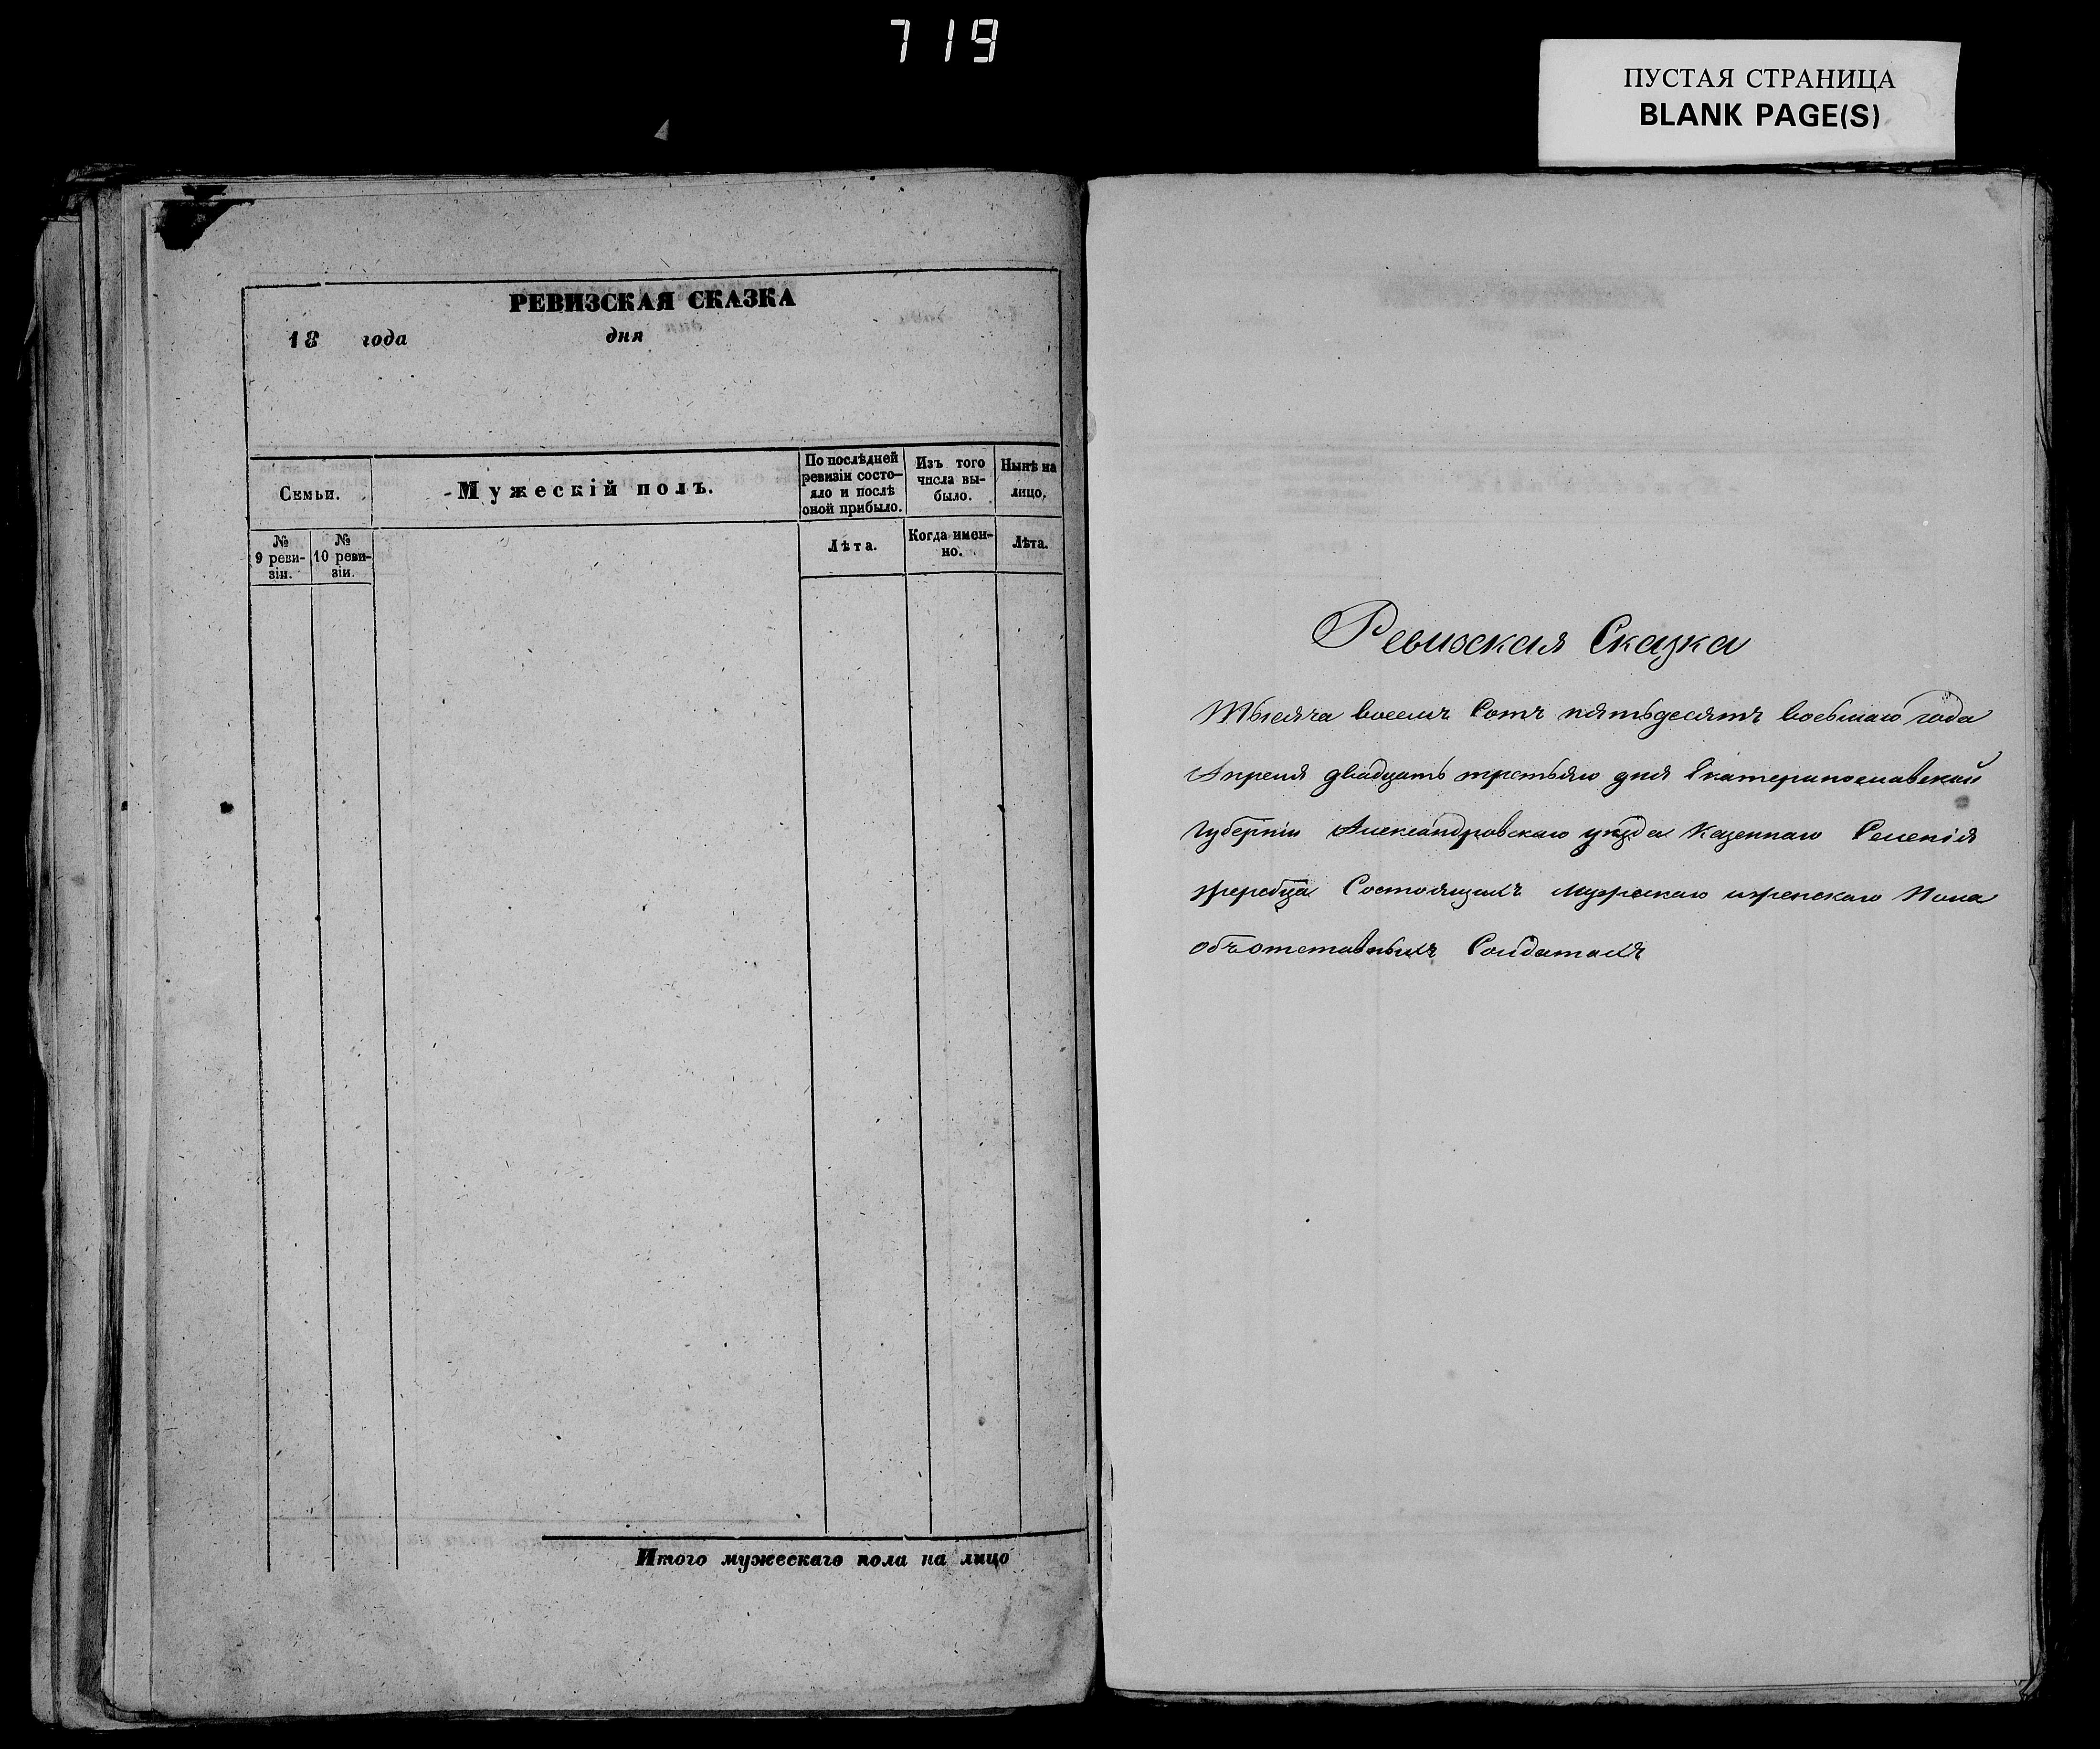 719
ПУСТАЯ СТРАНИЦА
BLANK PAGE(S)
РЕВИЗСКАЯ СКАЗКА
18 года дня
Семьи.
№ 9 реви-
зіи.
№ 10 реви-
зіи.
Мужескій полъ.
По послѣдней
ревизіи состо-
яло и послѣ
оной прибыло.
Лѣта.
Изъ того
числа вы-
было.
Когда имен-
но.
Нынѣ на
лицо.
Лѣта.
Итого мужескаго пола на лицо
Ревизская Сказка
Тысяча восемъ Сотъ пятьдесятъ восьмаго года
Апреля двадцать третьяго дня Екатеринославской
Губерніи Александровскаго уѣзда Казеннаго Селенія
жеребца Состоящихъ Мужескаго иженскаго Пола
объотставныхъ Солдатахъ